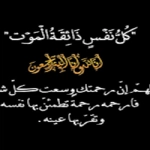 "كُلُّ نَفْسٍ ذَائِقَةُ الْمَوْتِ"
إنا لله وإنا إليه راجعون
لهمّ إنّ رحمتك وسعت كلّ ش
فارحمه رحمة تطمئنّ بها نفسه
وتقرّ بها عينه.